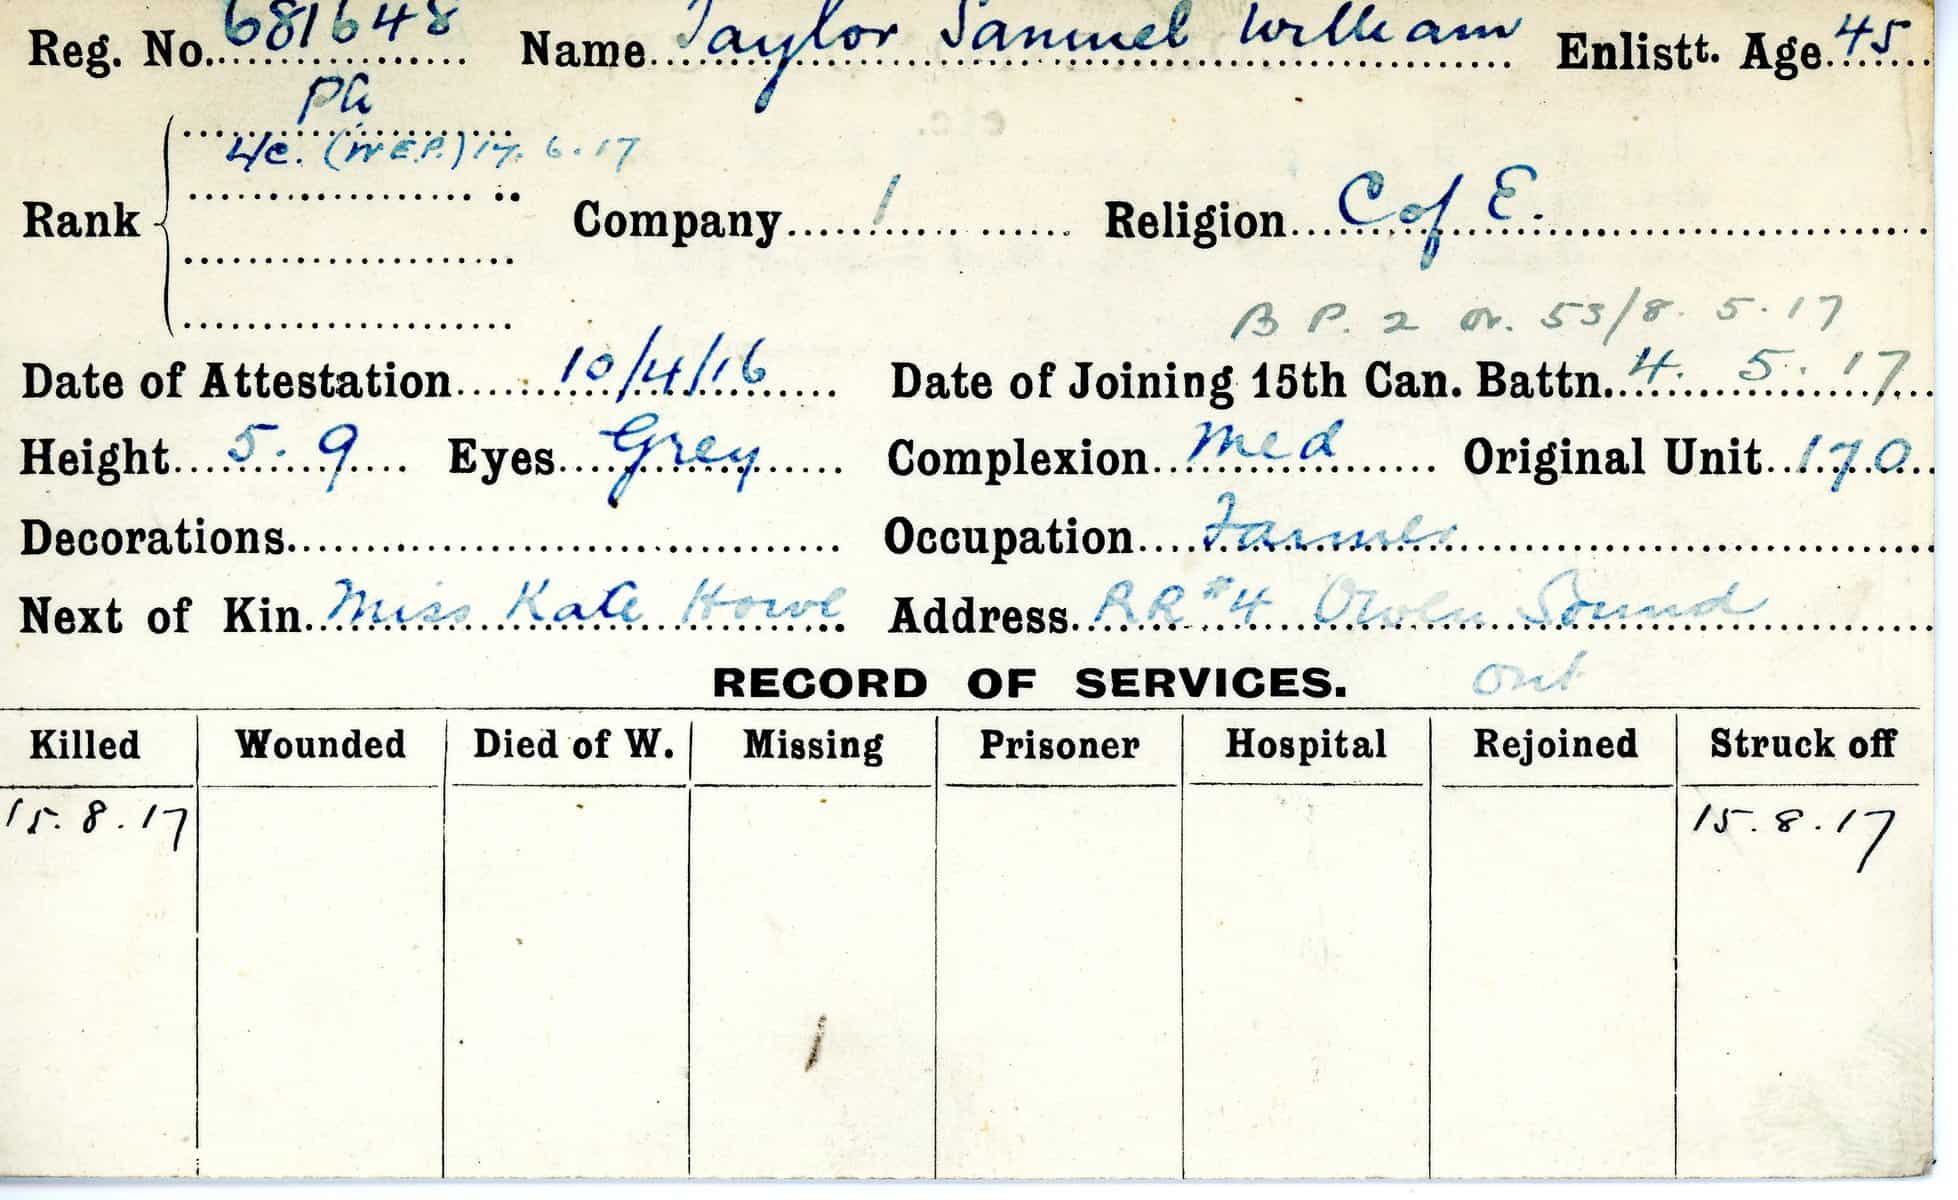 Reg. No. 681648 Name Taylor Samuel William Enlistt. Age 45
Pte
L/c. (W.E.P.) 17. 6. 17
Rank Company 1 Religion C of E.
B P. 2 Or. 53/8. 5. 17
Date of Attestation 10/4/16 Date of Joining 15th Can. Battn. 4. 5. 17
Height 5. 9 Eyes Grey Complexion Med Original Unit 170
Decorations Occupation Farmer
Next of Kin Miss Kate Howe Address RR #4 Owen Sound
RECORD OF SERVICES. Ont
Killed Wounded Died of W. Missing Prisoner Hospital Rejoined Struck off
15. 8. 17 15. 8. 17